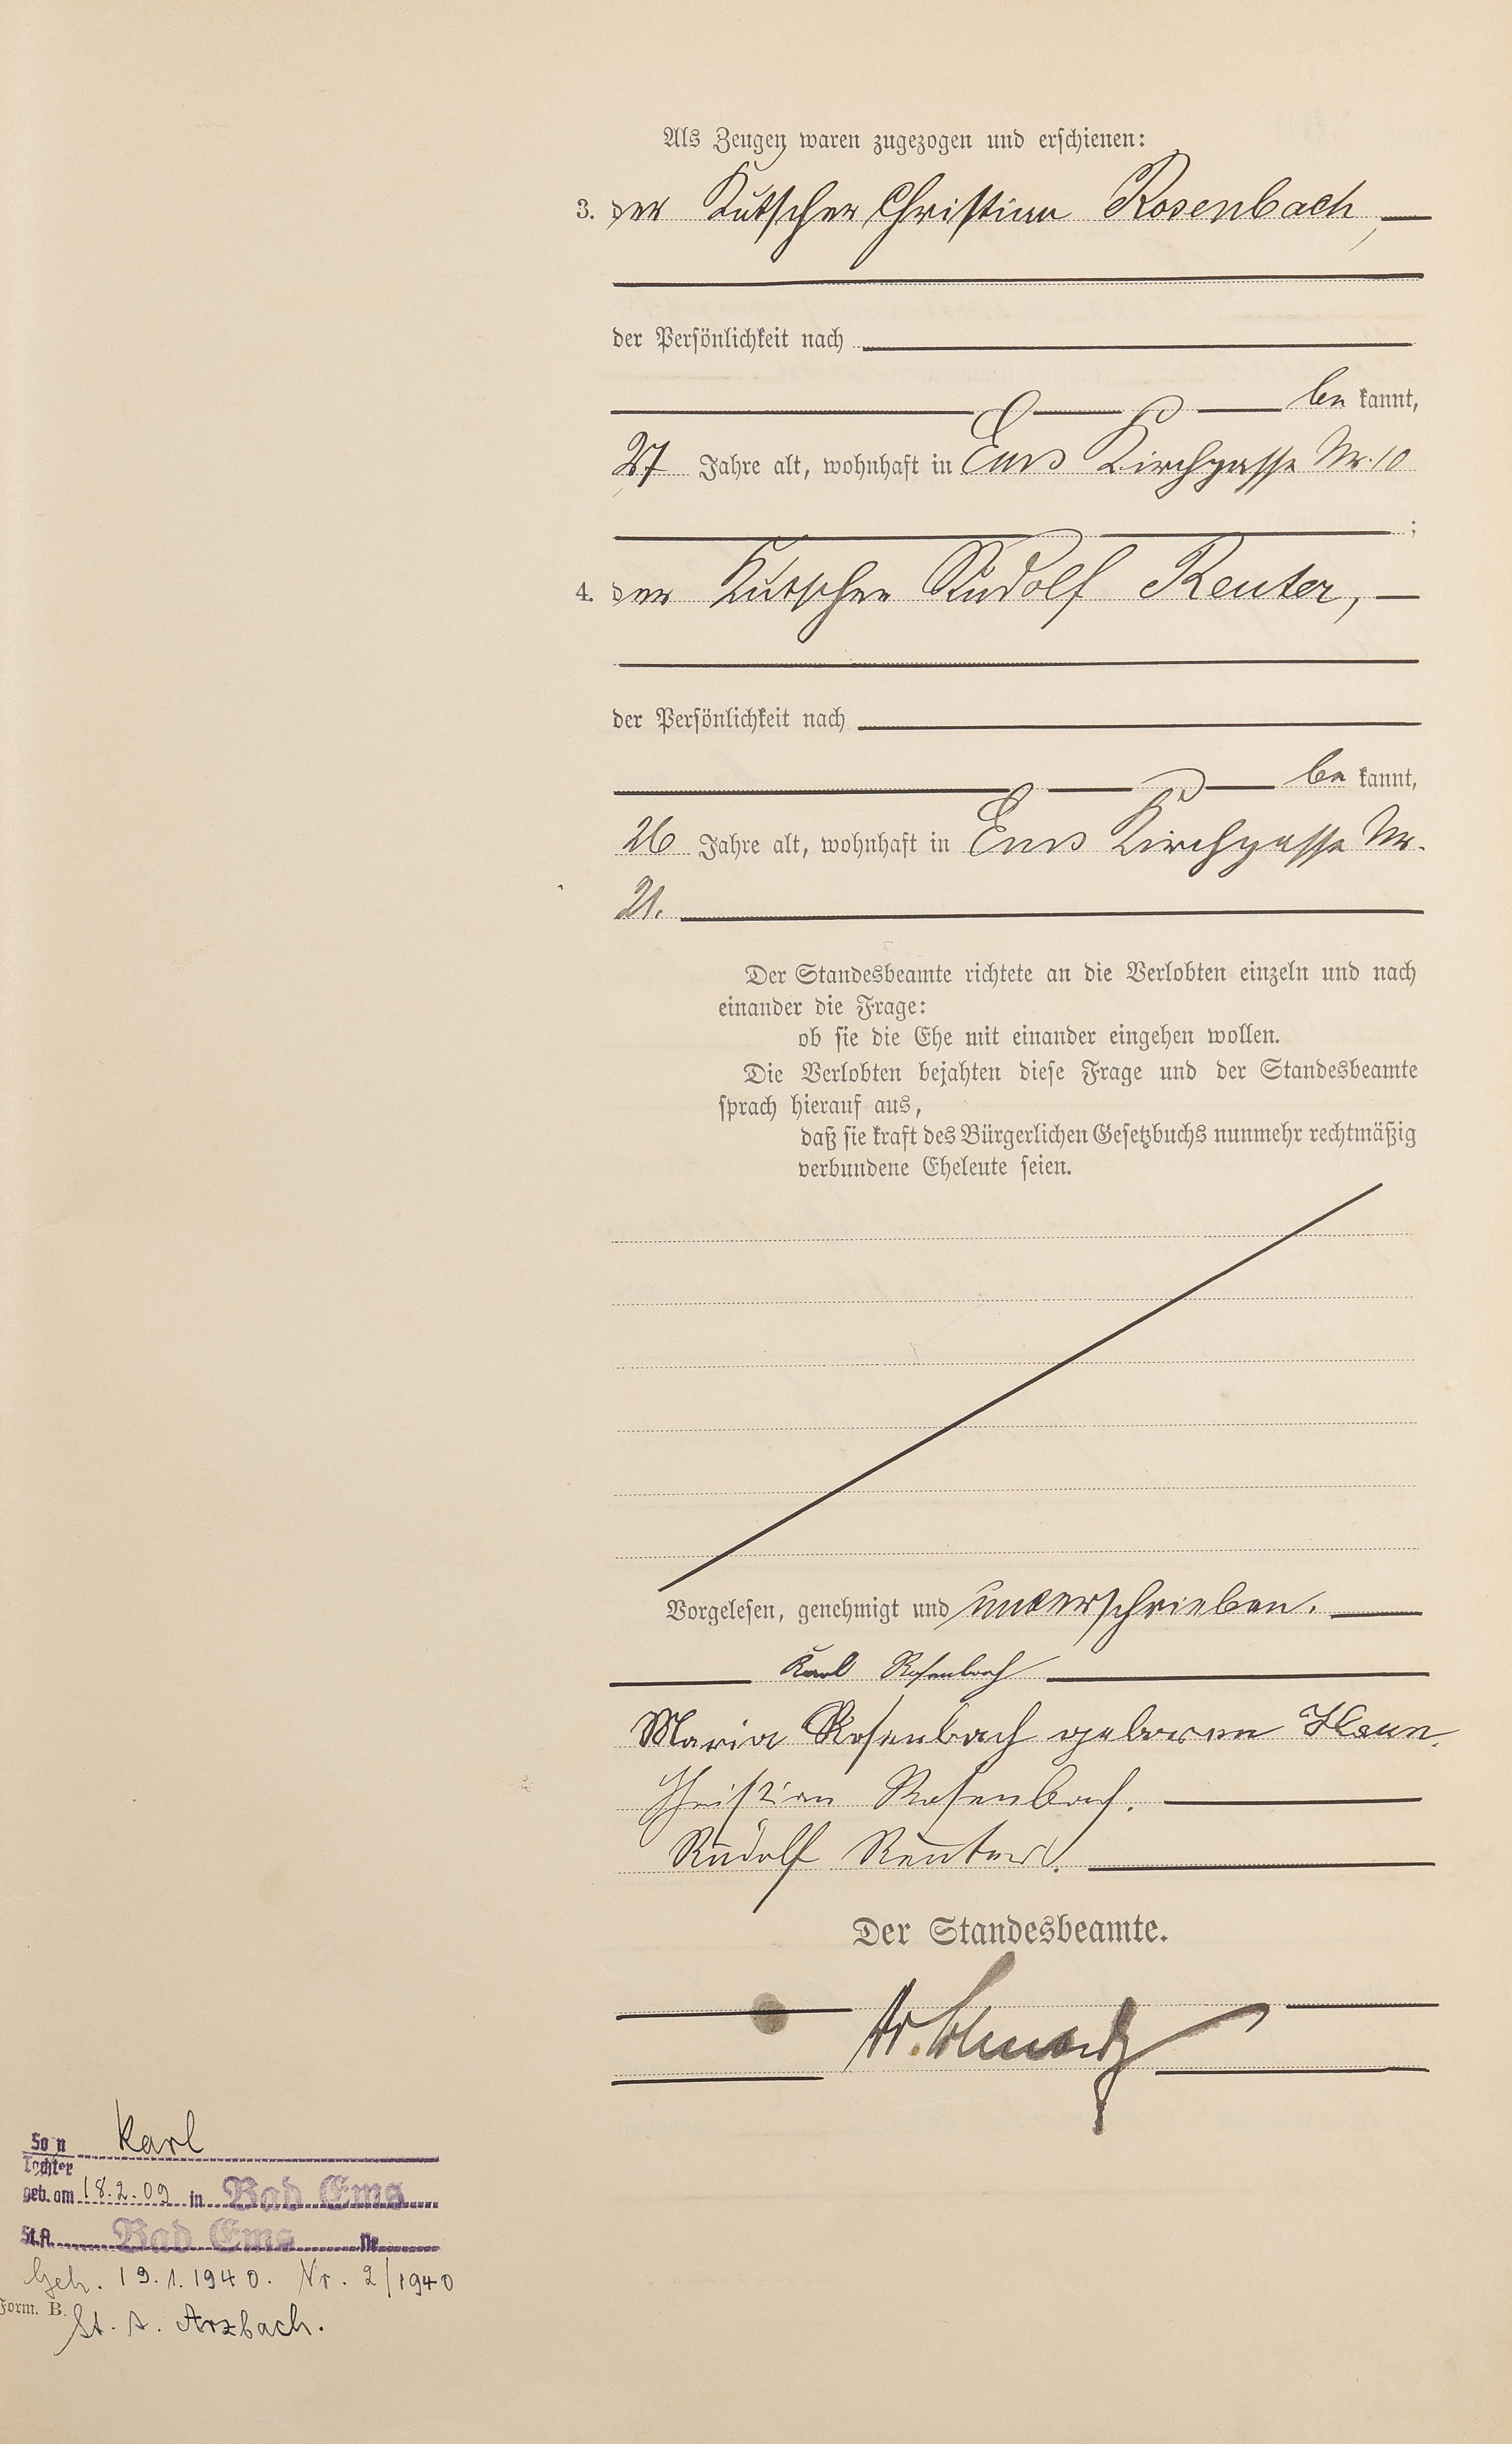 Als Zeugen waren zugezogen und erschienen:
3. der Kutscher Christian Rosenbach,
der Persönlichkeit nach
be kannt,
27 Jahre alt, wohnhaft in Ems Kirchgasse Nr. 10
;
4. der Kutscher Rudolf Reuter,
der Persönlichkeit nach
be kannt,
26 Jahre alt, wohnhaft in Ems Kirchgasse Nr.
21.
Der Standesbeamte richtete an die Verlobten einzeln und nach
einander die Frage:
ob sie die Ehe mit einander eingehen wollen.
Die Verlobten bejahten diese Frage und der Standesbeamte
sprach hierauf aus,
daß sie kraft des Bürgerlichen Gesetzbuchs nunmehr rechtmäßig
verbundene Eheleute seien.
Vorgelesen, genehmigt und unterschrieben.
Karl Rosenbach
Maria Rosenbach geboren
Christian Rosenbach.
Rudolf Reuter.
Der Standesbeamte.
Sohn Karl
Tochter
geb. am 18.2.09 in Bad Ems
St.A. Bad Ems Nr.
Geh. 19.1.1940. Nr. 2/1940
Form. B.
St. A. Arzbach.